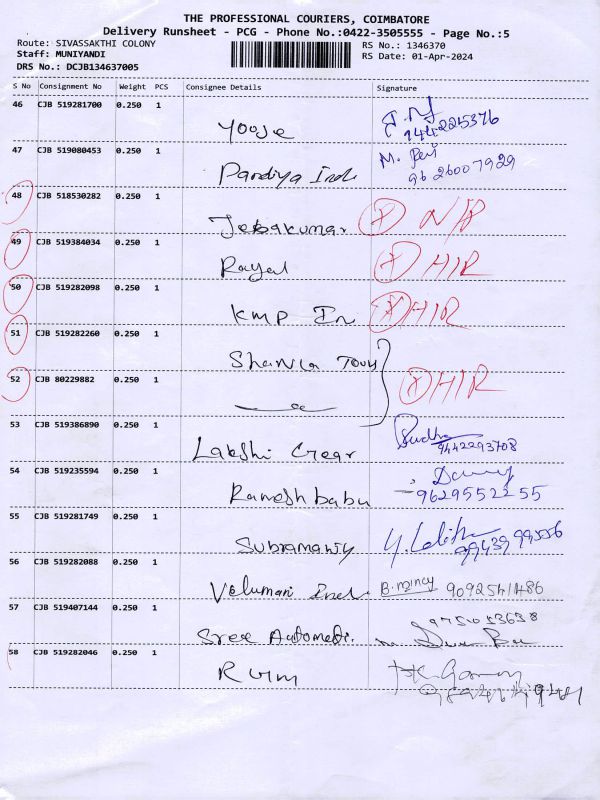 THE PROFESSIONAL COURIERS, COIMBATORE
Delivery Runsheet - PCG - Phone No.:0422-3505555 - Page No.:5
Route: SIVASSAKTHI COLONY RS No.: 1346370
Staff: MUNIYANDI RS Date: 01-Apr-2024
DRS No.: DCJB134637005
S No Consignment No Weight PCS Consignee Details Signature
46 CJB 519281700 0.250 1
47 CJB 519080453 0.250 1 Pandiya Ind M. 96 26007929
48 CJB 518530282 0.250 1 Jebakumar X
49 CJB 519384034 0.250 1 Rayal X HIR
50 CJB 519282098 0.250 1 KMP En X HIR
51 CJB 519282260 0.250 1 Tours
52 CJB 80229882 0.250 1 X HIR
53 CJB 519386890 0.250 1 Lakshi Gear Sudha 9442293708
54 CJB 519235594 0.250 1 Ramesh babu 9629552255
55 CJB 519281749 0.250 1 Subramaniy Y. Lalitha
56 CJB 519282088 0.250 1 Velumani Ind B. 9092541486
57 CJB 519407144 0.250 1 Sree Automati.
58 CJB 519282046 0.250 1